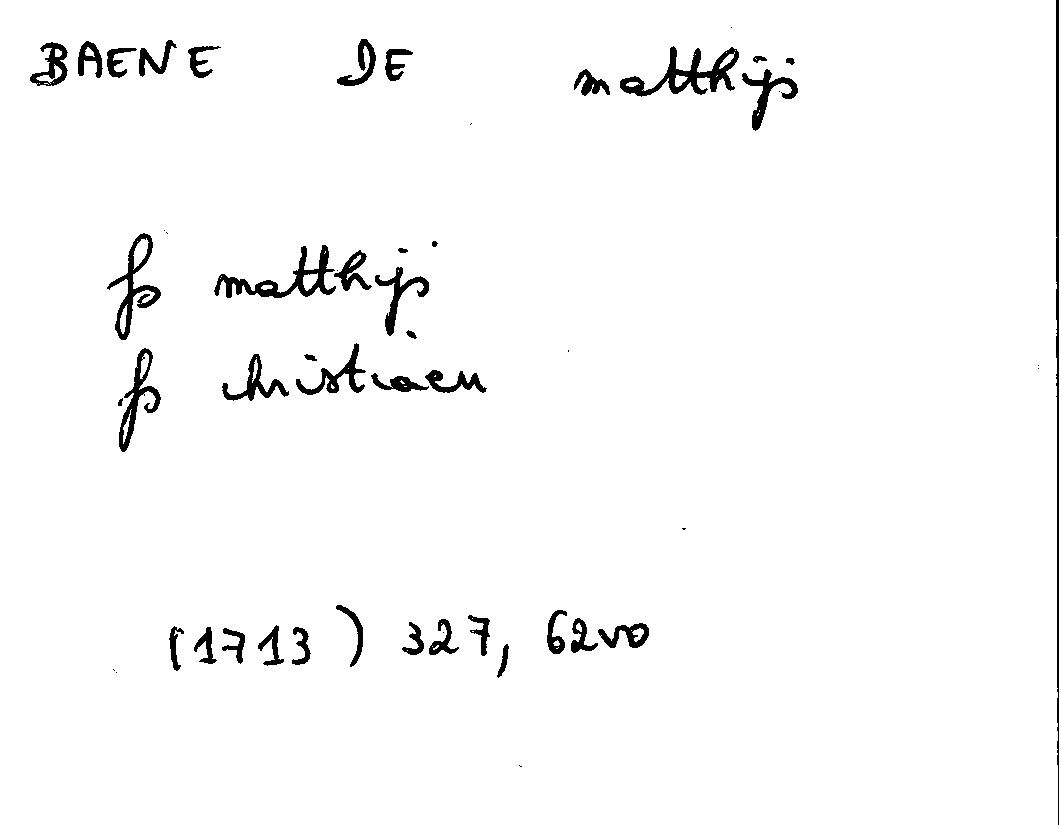 BAENE DE matthijs
fs matthijs
fs christiaen
(1713) 327, 62vo